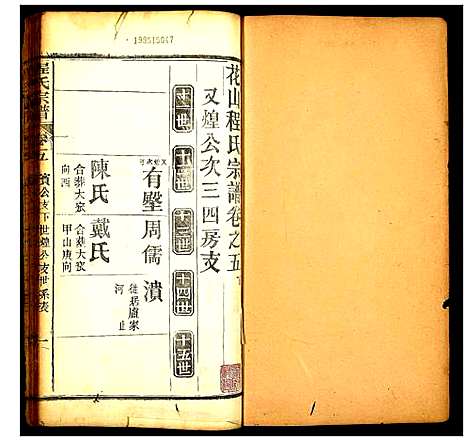 199515047
花山程氏宗譜卷之五
又煌公次三四房支
十一世
十二世
十三世
十四世
十五世
有壂
周儒
潰
徙居盧家
河止
陳氏
合葬大窊
向西
戴氏
合葬大窊
甲山庚向
程氏宗譜
卷五
賓公支下世煌公支世系表
一